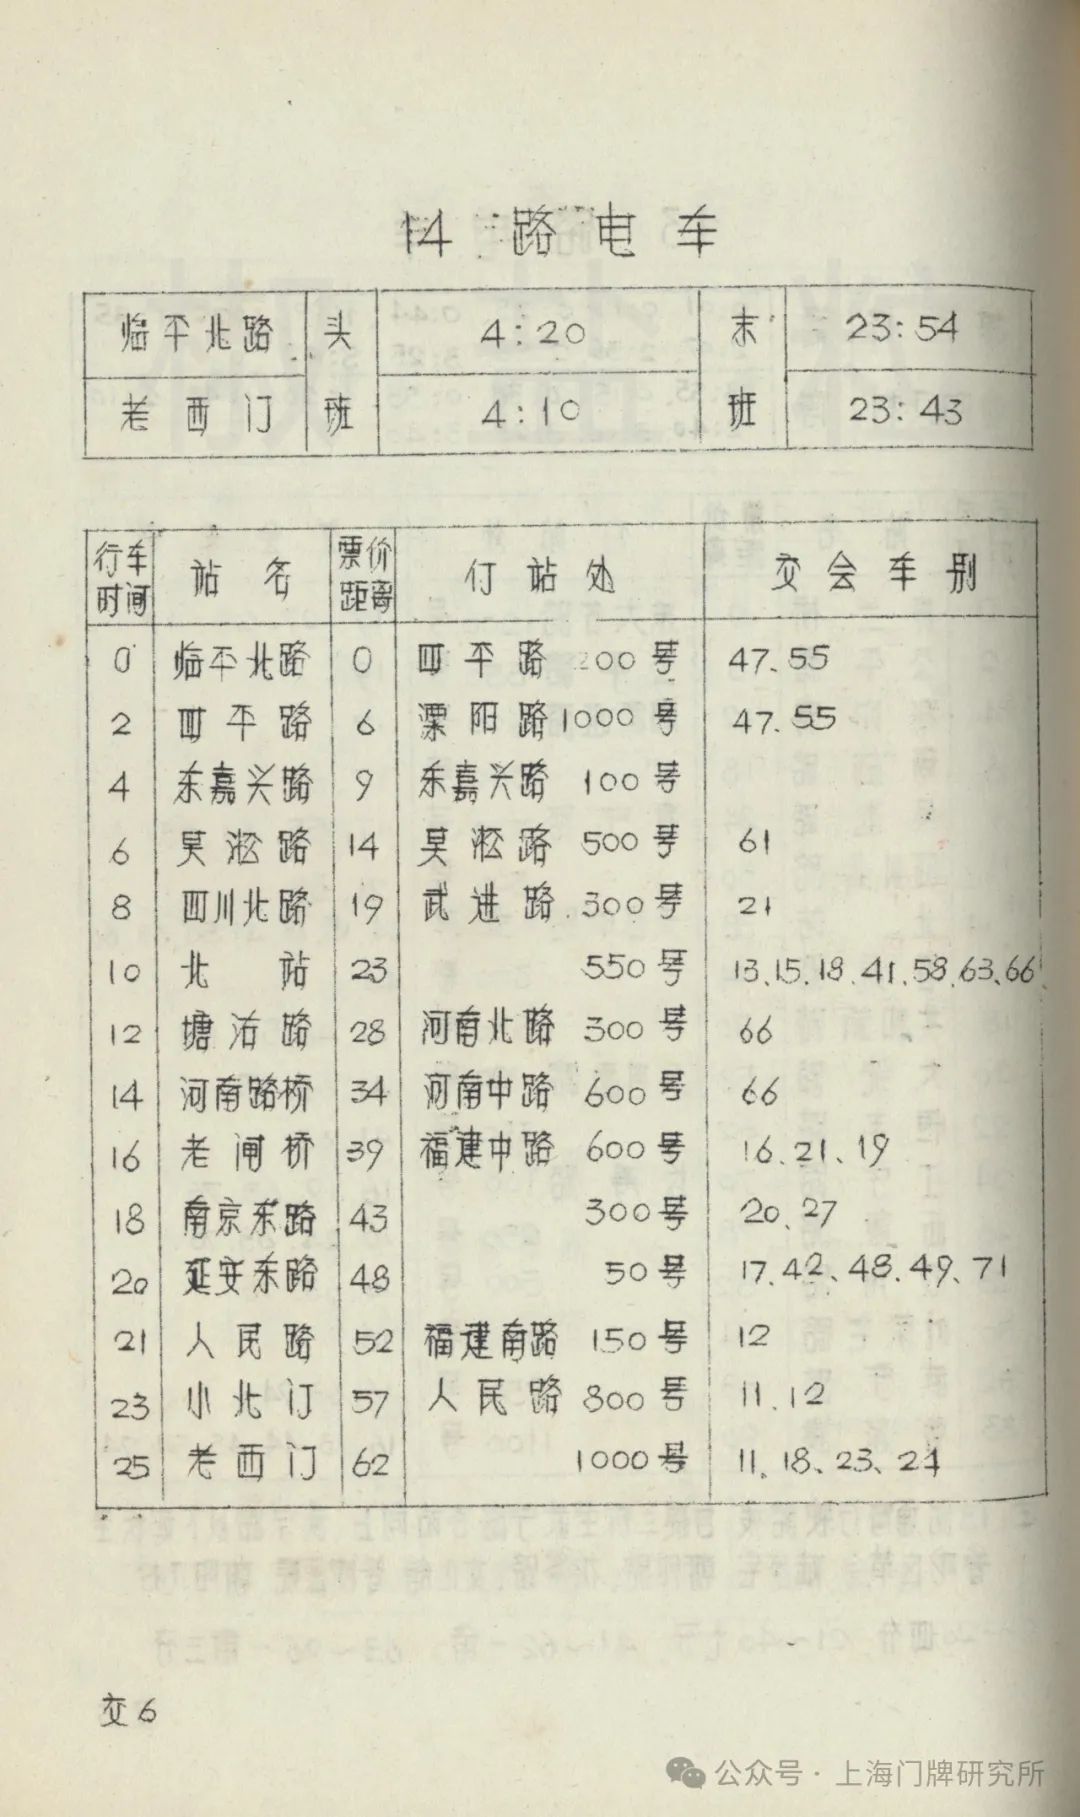 14 路电车
临平北路 头 4:20 末 23:54
老西门 班 4:10 班 23:43
行车时间 站名 票价距离 仃站处 交会车别
0 临平北路 0 四平路 200号 47、55
2 四平路 6 溧阳路1000号 47、55
4 东嘉兴路 9 东嘉兴路 100号
6 吴淞路 14 吴淞路 500号 61
8 四川北路 19 武进路 300号 21
10 北站 23 550号 13、15、18、41、58、63、66
12 塘沽路 28 河南北路 300号 66
14 河南路桥 34 河南中路 600号 66
16 老闸桥 39 福建中路 600号 16、21、19
18 南京东路 43 300号 20、27
20 延安东路 48 50号 17、42、48、49、71
21 人民路 52 福建南路 150号 12
23 小北门 57 人民路 800号 11、12
25 老西门 62 1000号 11、18、23、24
交6
公众号·上海门牌研究所